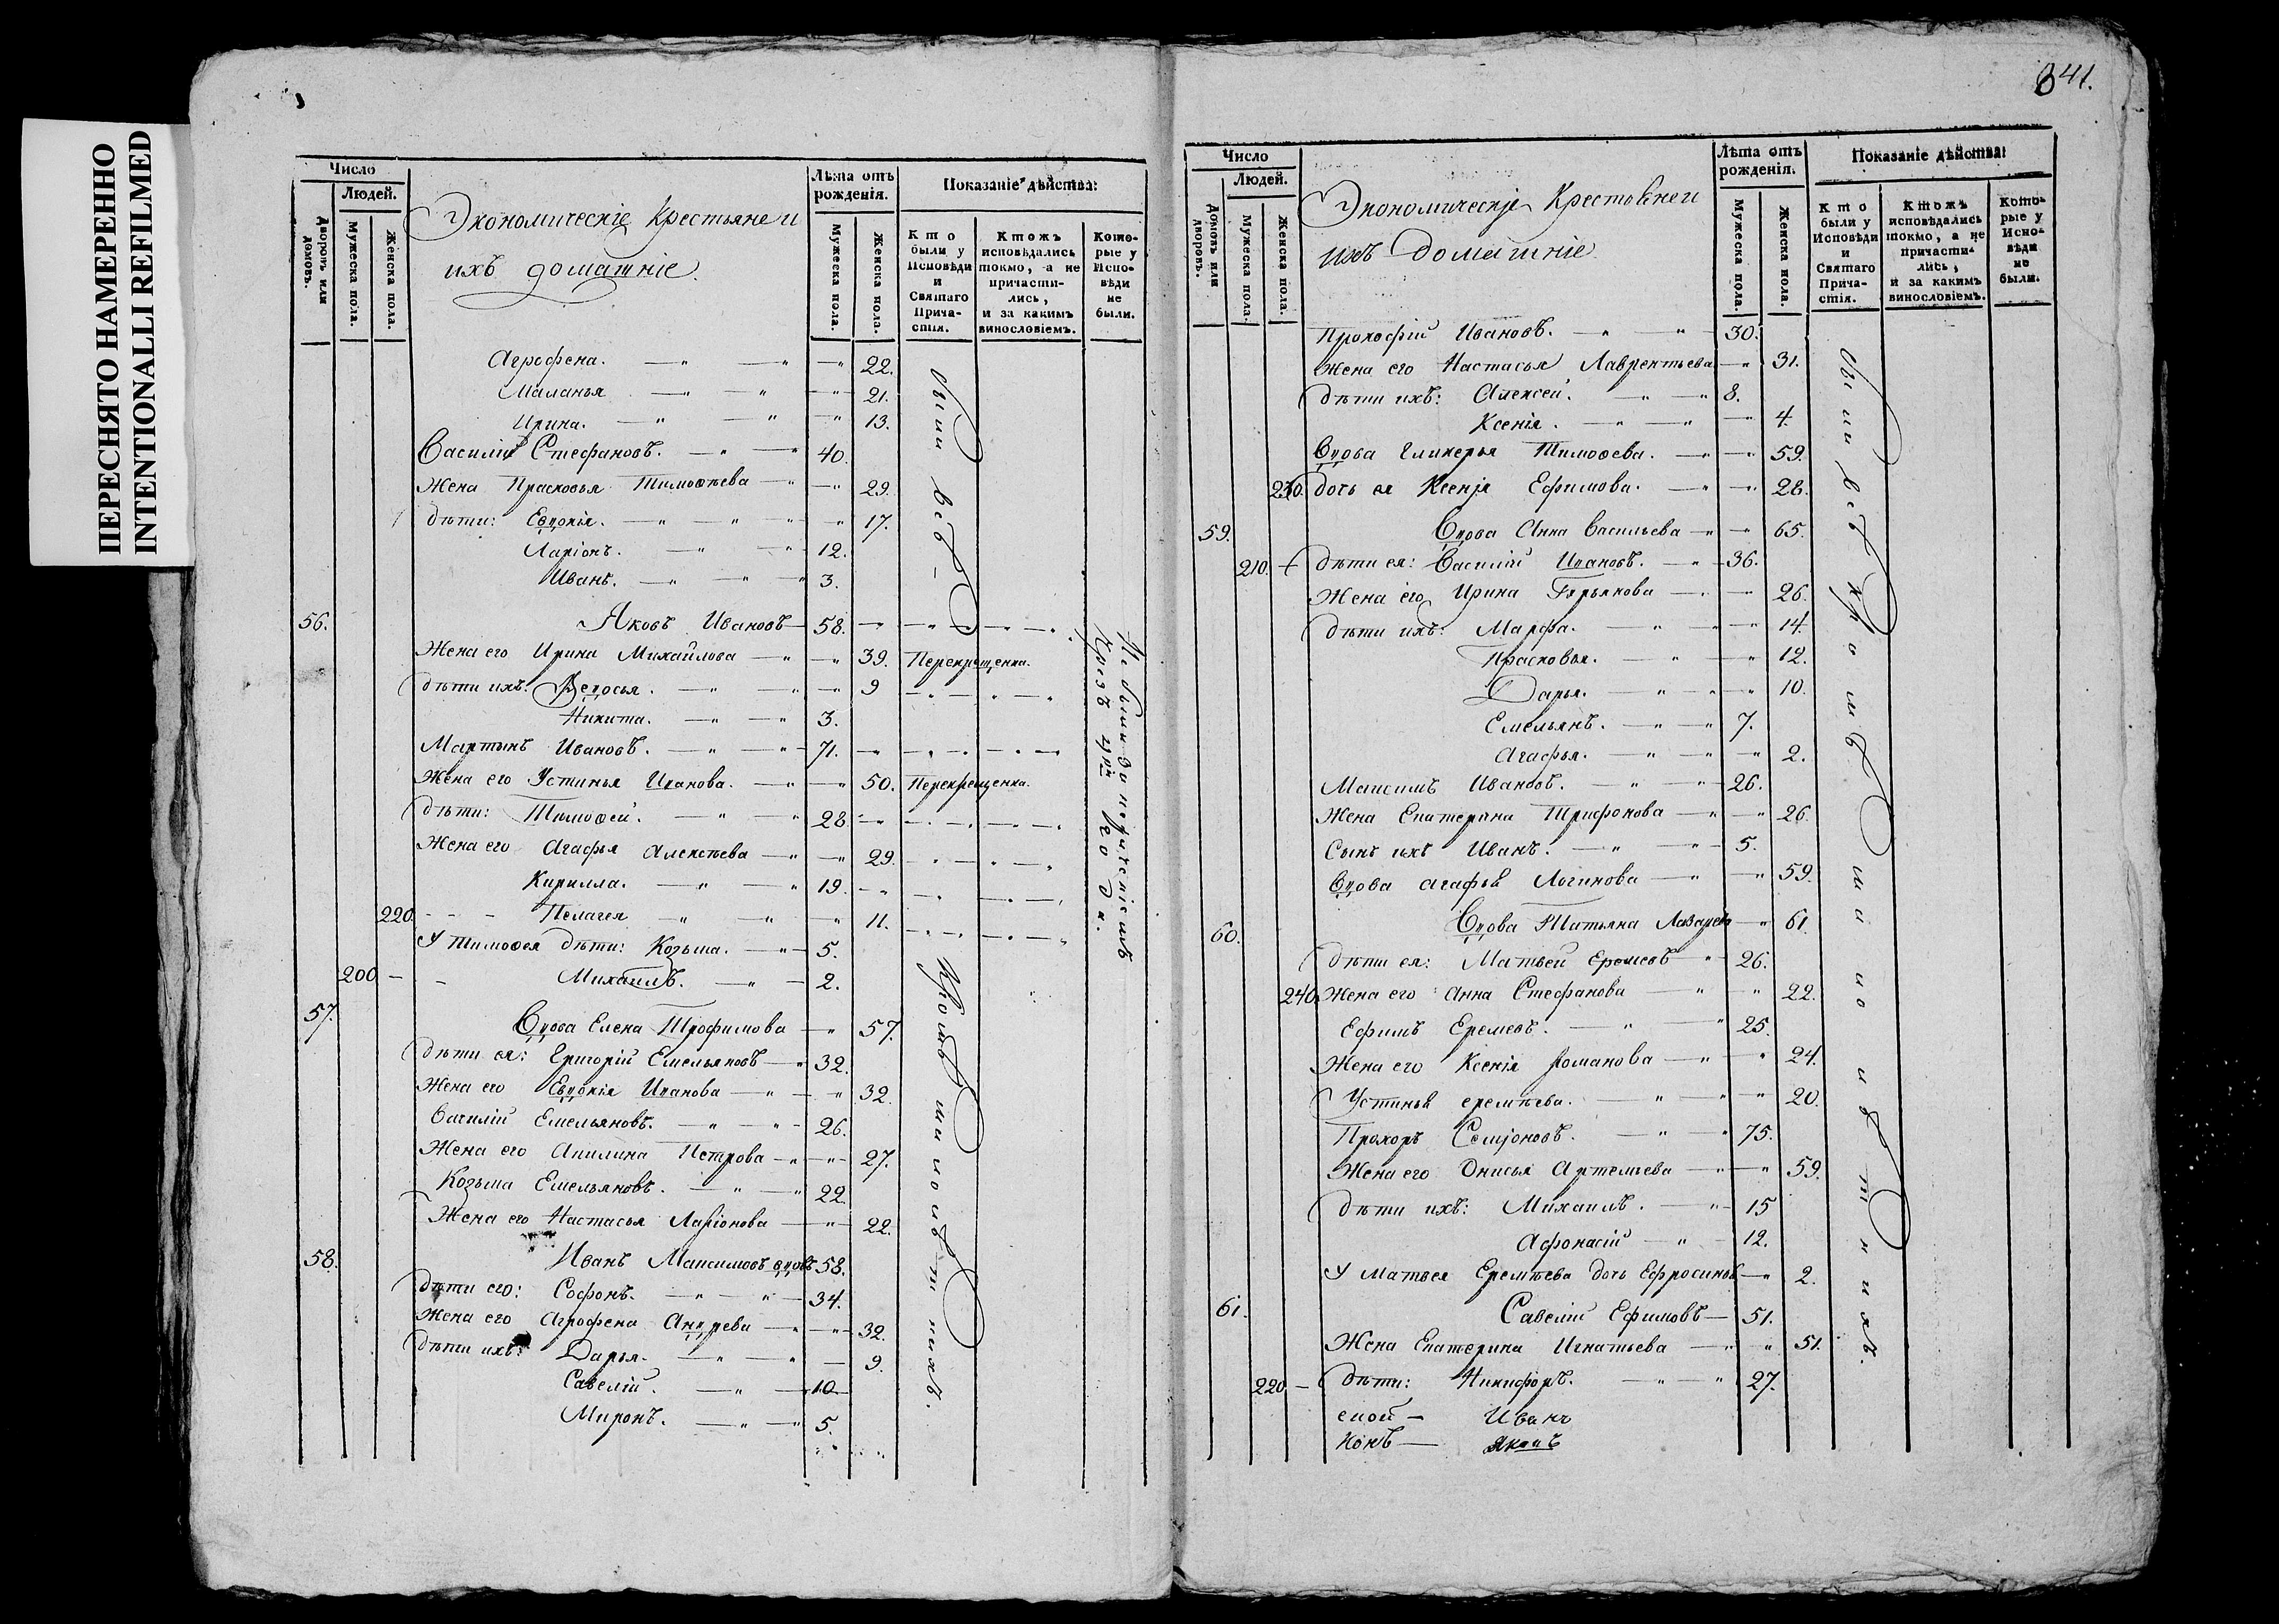 ПЕРЕСНЯТО НАМЕРЕННО
INTENTIONALLI REFILMED
Число
Людей.
Дворовъ или домовъ.
Мужеска пола.
Женска пола.
Экономическіе Крестьяне и
ихъ домашніе.
Лѣта отъ рожденія.
Мужеска пола.
Женска пола.
Показаніе дѣйства:
Кто были у Исповѣди и Святаго Прича- стія.
Ктожъ исповѣдались токмо, а не причасти- лись, и за какимъ винословіемъ.
Кото- рые у Испо- вѣди не были.
Агрофена. 22.
Маланья 21.
Ирина. 13.
Василій Стефановъ. 40.
Жена Прасковья Тимофѣева 29.
Дѣти: Евдокія. 17.
Ларіонъ. 12.
Иванъ. 3.
были всѣ
56. Яковъ Ивановъ 58.
Жена его Ирина Михайлова 39. Перекрещенка.
Дѣти ихъ: Ѳедосья. 9
Никита. 3.
Мартынъ Ивановъ. 71.
Жена его Устинья Иванова. 50. Перекрещенка.
Дѣти: Тимофей. 28.
Жена его Агафья Алексѣева 29.
Кирилла. 19.
220. Пелагея 11.
У Тимофея дѣти: Козьма. 5.
200 Михаилъ. 2.
Не были за нераченіемъ
Чрезъ года.
57. Вдова Елена Трофимова 57.
Дѣти ея: Григорій Емельяновъ 32.
Жена его Евдокія Иванова 32.
Василій Емельяновъ. 26.
Жена его Акилина Петрова 27.
Козьма Емельяновъ. 22.
Жена его Настасья Ларіонова 22.
58. Иванъ Максимовъ вдовъ 58.
Дѣти его: Софонъ. 34.
Жена его Агрофена Андрева 32.
Дѣти ихъ: Дарья. 9.
Савелій. 10
Миронъ. 5.
Кромѣ малолѣтнихъ.
341.
Число
Людей.
Домовъ или дворовъ.
Мужеска пола.
Женска пола.
Экономическіе Крестьяне и
ихъ Домашніе
Лѣта отъ рожденія.
Мужеска пола.
Женска пола.
Показаніе дѣйства:
Кто были у Исповѣди и Святаго Прича- стія.
Ктожъ исповѣдались токмо, а не причасти- лись, и за какимъ винословіемъ.
Кото- рые у Испо- вѣди не были.
Прокофій Ивановъ. 30.
Жена его Настасья Лаврентьева 31.
Дѣти ихъ: Алексей. 8.
Ксенія. 4.
Вдова Гликерья Тимофева. 59.
230. Дочь ея Ксенія Ефимова. 28.
59. Вдова Анна Васильева 65.
210. Дѣти ея: Василій Ивановъ. 36.
Жена его Ирина 26.
Дѣти ихъ: Марфа. 14.
Прасковья. 12.
Дарья. 10.
Емельянъ. 7.
Агафья. 2.
Максимъ Ивановъ. 26.
Жена Екатерина Трифонова 26.
Сынъ ихъ Иванъ. 5.
Вдова Агафья Логинова 59.
60. Вдова Татьяна Лазарева 61.
Дѣти ея: Матвей Еремеевъ 26.
240. Жена его Анна Стефанова 22.
Ефимъ Еремеевъ. 25.
Жена его Ксенія Романова 24.
Устинья Еремѣева. 20.
Прохоръ Семіоновъ. 75.
Жена его Онисья Артемьева 59.
Дѣти ихъ: Михаилъ. 15
Афонасій 12.
У Матвея Еремѣева дочь Ефросинья 2.
61. Савелій Ефимовъ 51.
Жена Екатерина Игнатьева 51.
220 Дѣти: Никифоръ. 27.
были всѣ кромѣ малолѣтнихъ.
Иванъ
Яковъ